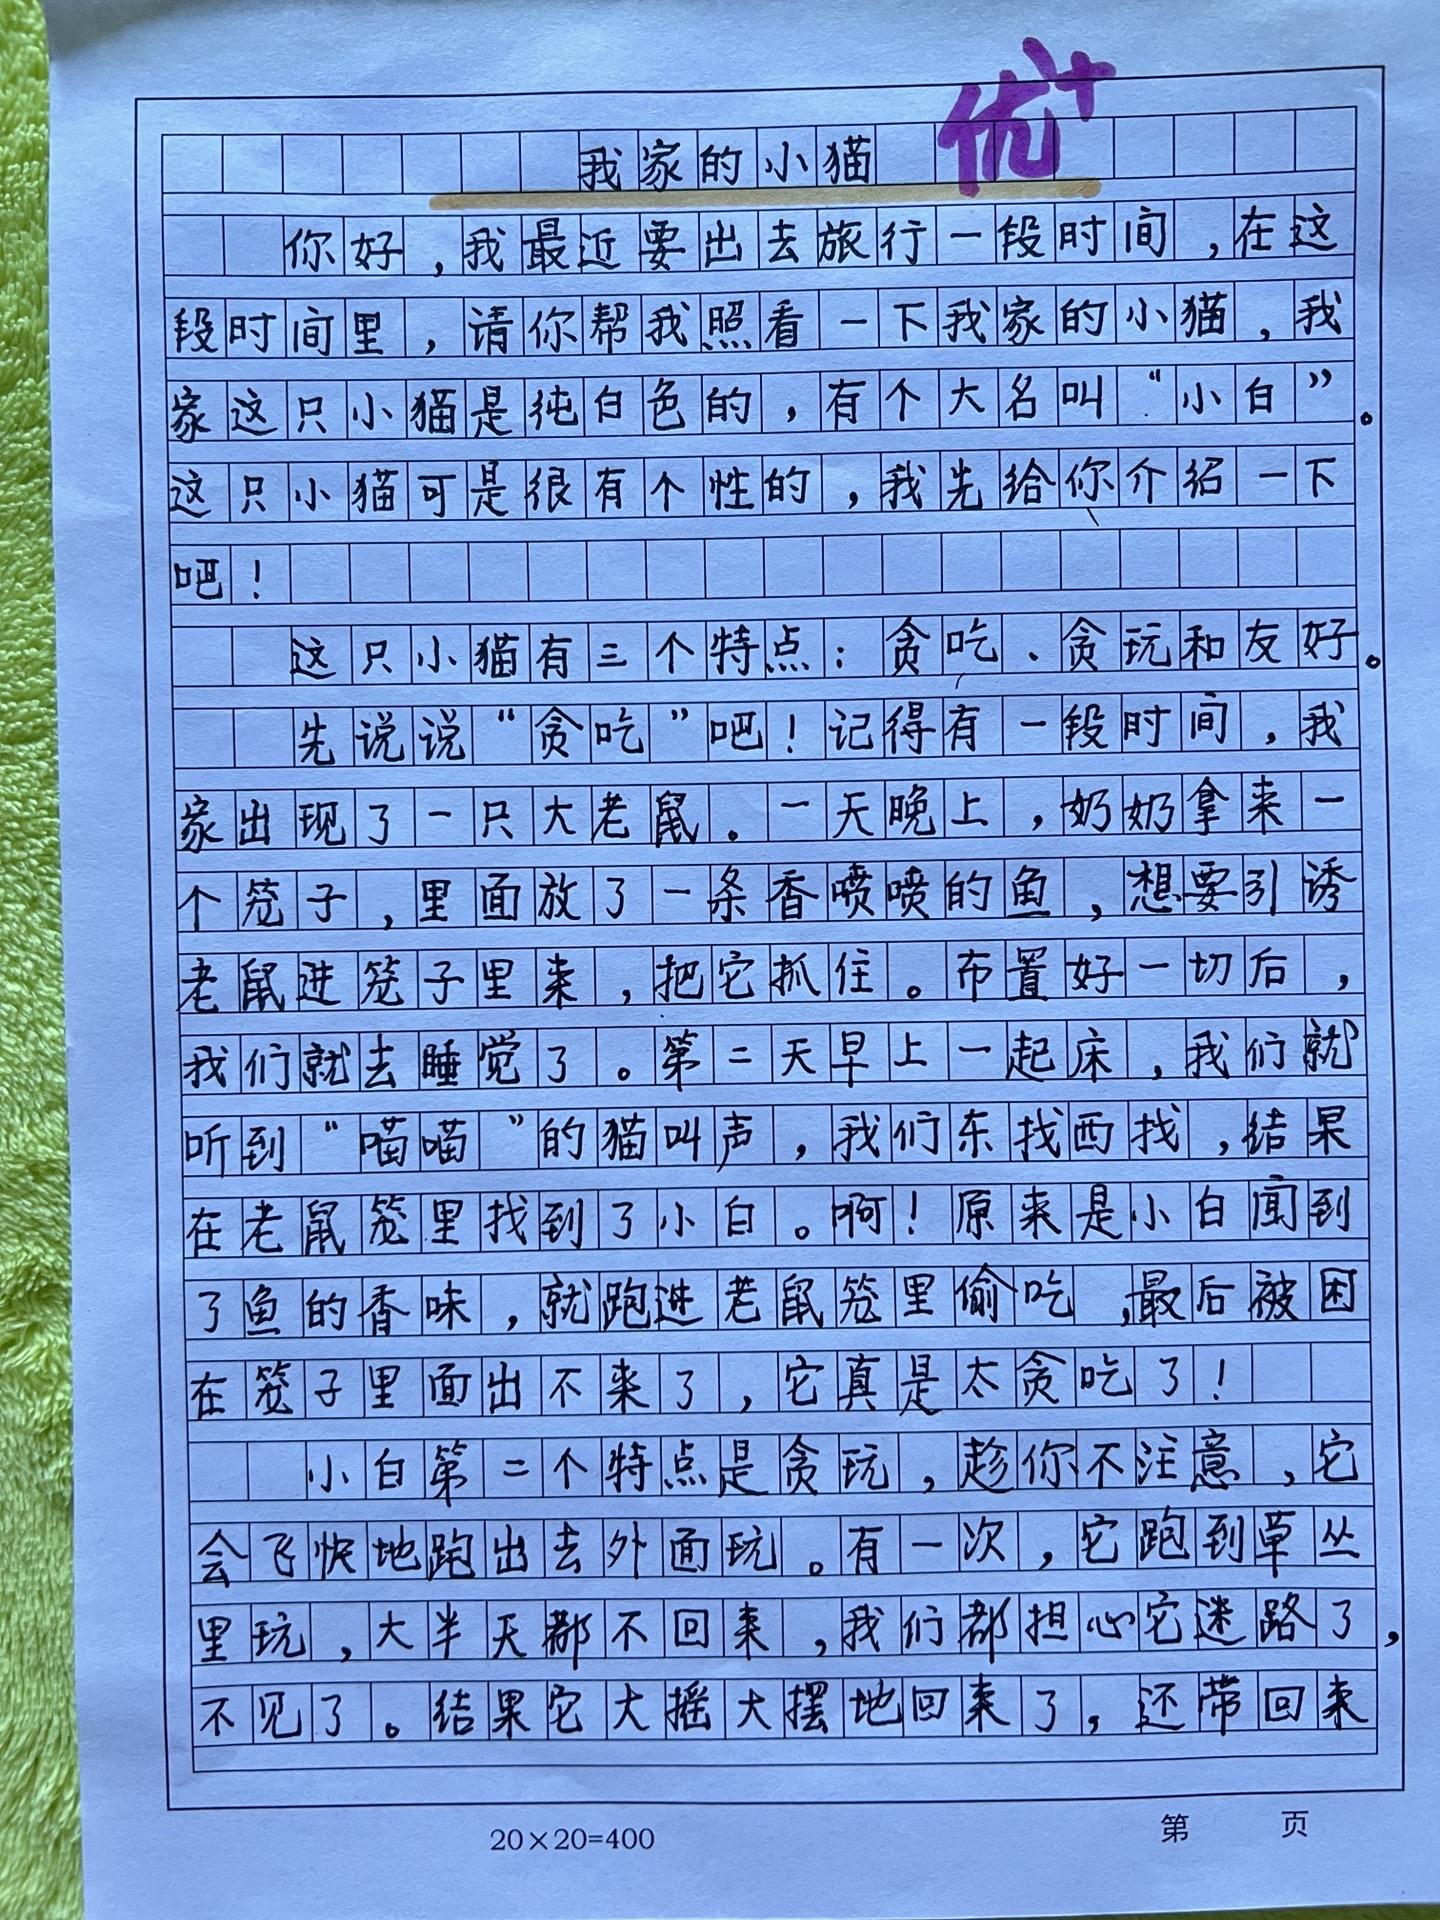 我家的小猫 优+
你好，我最近要出去旅行一段时间，在这
段时间里，请你帮我照看一下我家的小猫，我
家这只小猫是纯白色的，有个大名叫“小白”。
这只小猫可是很有个性的，我先给你介绍一下
吧！
这只小猫有三个特点：贪吃、贪玩和友好。
先说说“贪吃”吧！记得有一段时间，我
家出现了一只大老鼠。一天晚上，奶奶拿来一
个笼子，里面放了一条香喷喷的鱼，想要引诱
老鼠进笼子里来，把它抓住。布置好一切后，
我们就去睡觉了。第二天早上一起床，我们就
听到“喵喵”的猫叫声，我们东找西找，结果
在老鼠笼里找到了小白。啊！原来是小白闻到
了鱼的香味，就跑进老鼠笼里偷吃，最后被困
在笼子里面出不来了，它真是太贪吃了！
小白第二个特点是贪玩，趁你不注意，它
会飞快地跑出去外面玩。有一次，它跑到草丛
里玩，大半天都不回来，我们都担心它迷路了，
不见了。结果它大摇大摆地回来了，还带回来
20×20=400
第 页